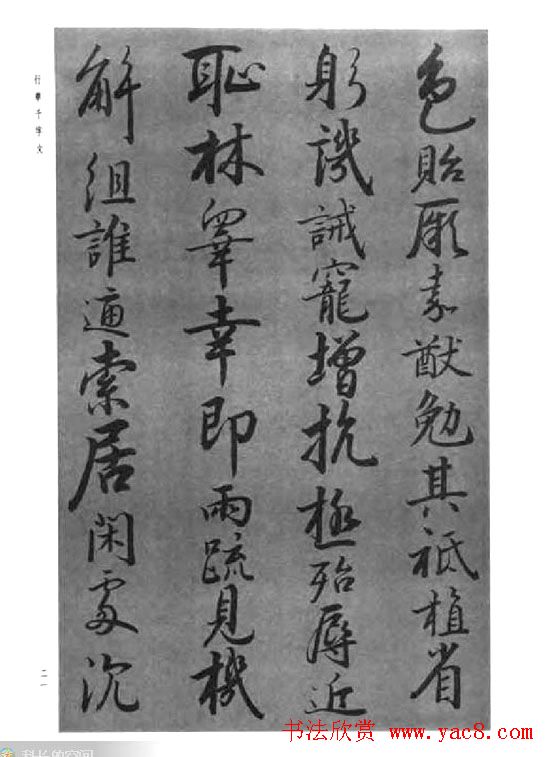 色貽厥嘉猷勉其祗植省
躬譏誡寵增抗極殆辱近
恥林皋幸即兩疏見機
解組誰逼索居閑處沉
行書千字文
二一
书法欣赏 www.yac8.com
科长的空间